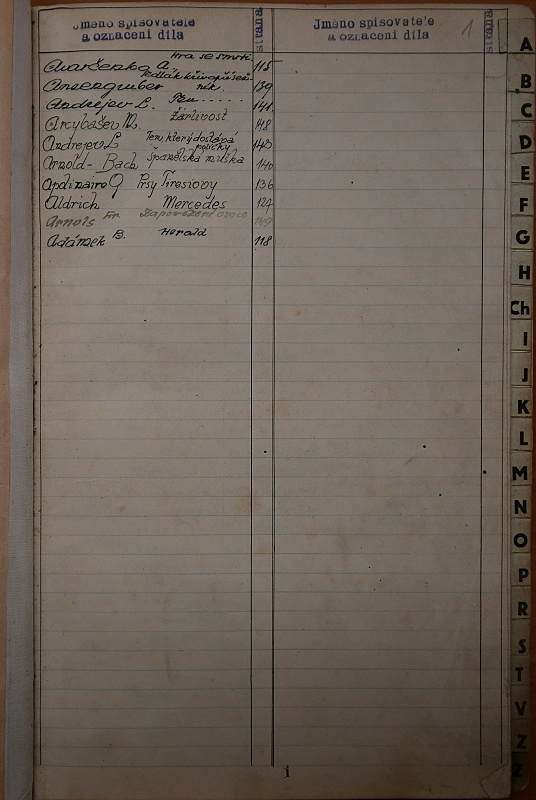 Jméno spisovatele
a označení díla
strana
Jméno spisovatele
a označení díla
1
strana
Hra se smrtí
A. 115
Anzengruber 139
Andrejev L. 141
Arcybašev M. Žárlivost 148
Andrejev L Ten, který dostává
políčky 143
Arnold - Bach Španělská muška 140
Apolinaire G Prsy Tiresiovy 136
Aldrich Mercedes 127
Arnols Fr. Zapovězené ovoce 149
Adámek B. Herold 118
A
B
C
D
E
F
G
H
Ch
I
J
K
L
M
N
O
P
R
S
T
V
Z
Z
1